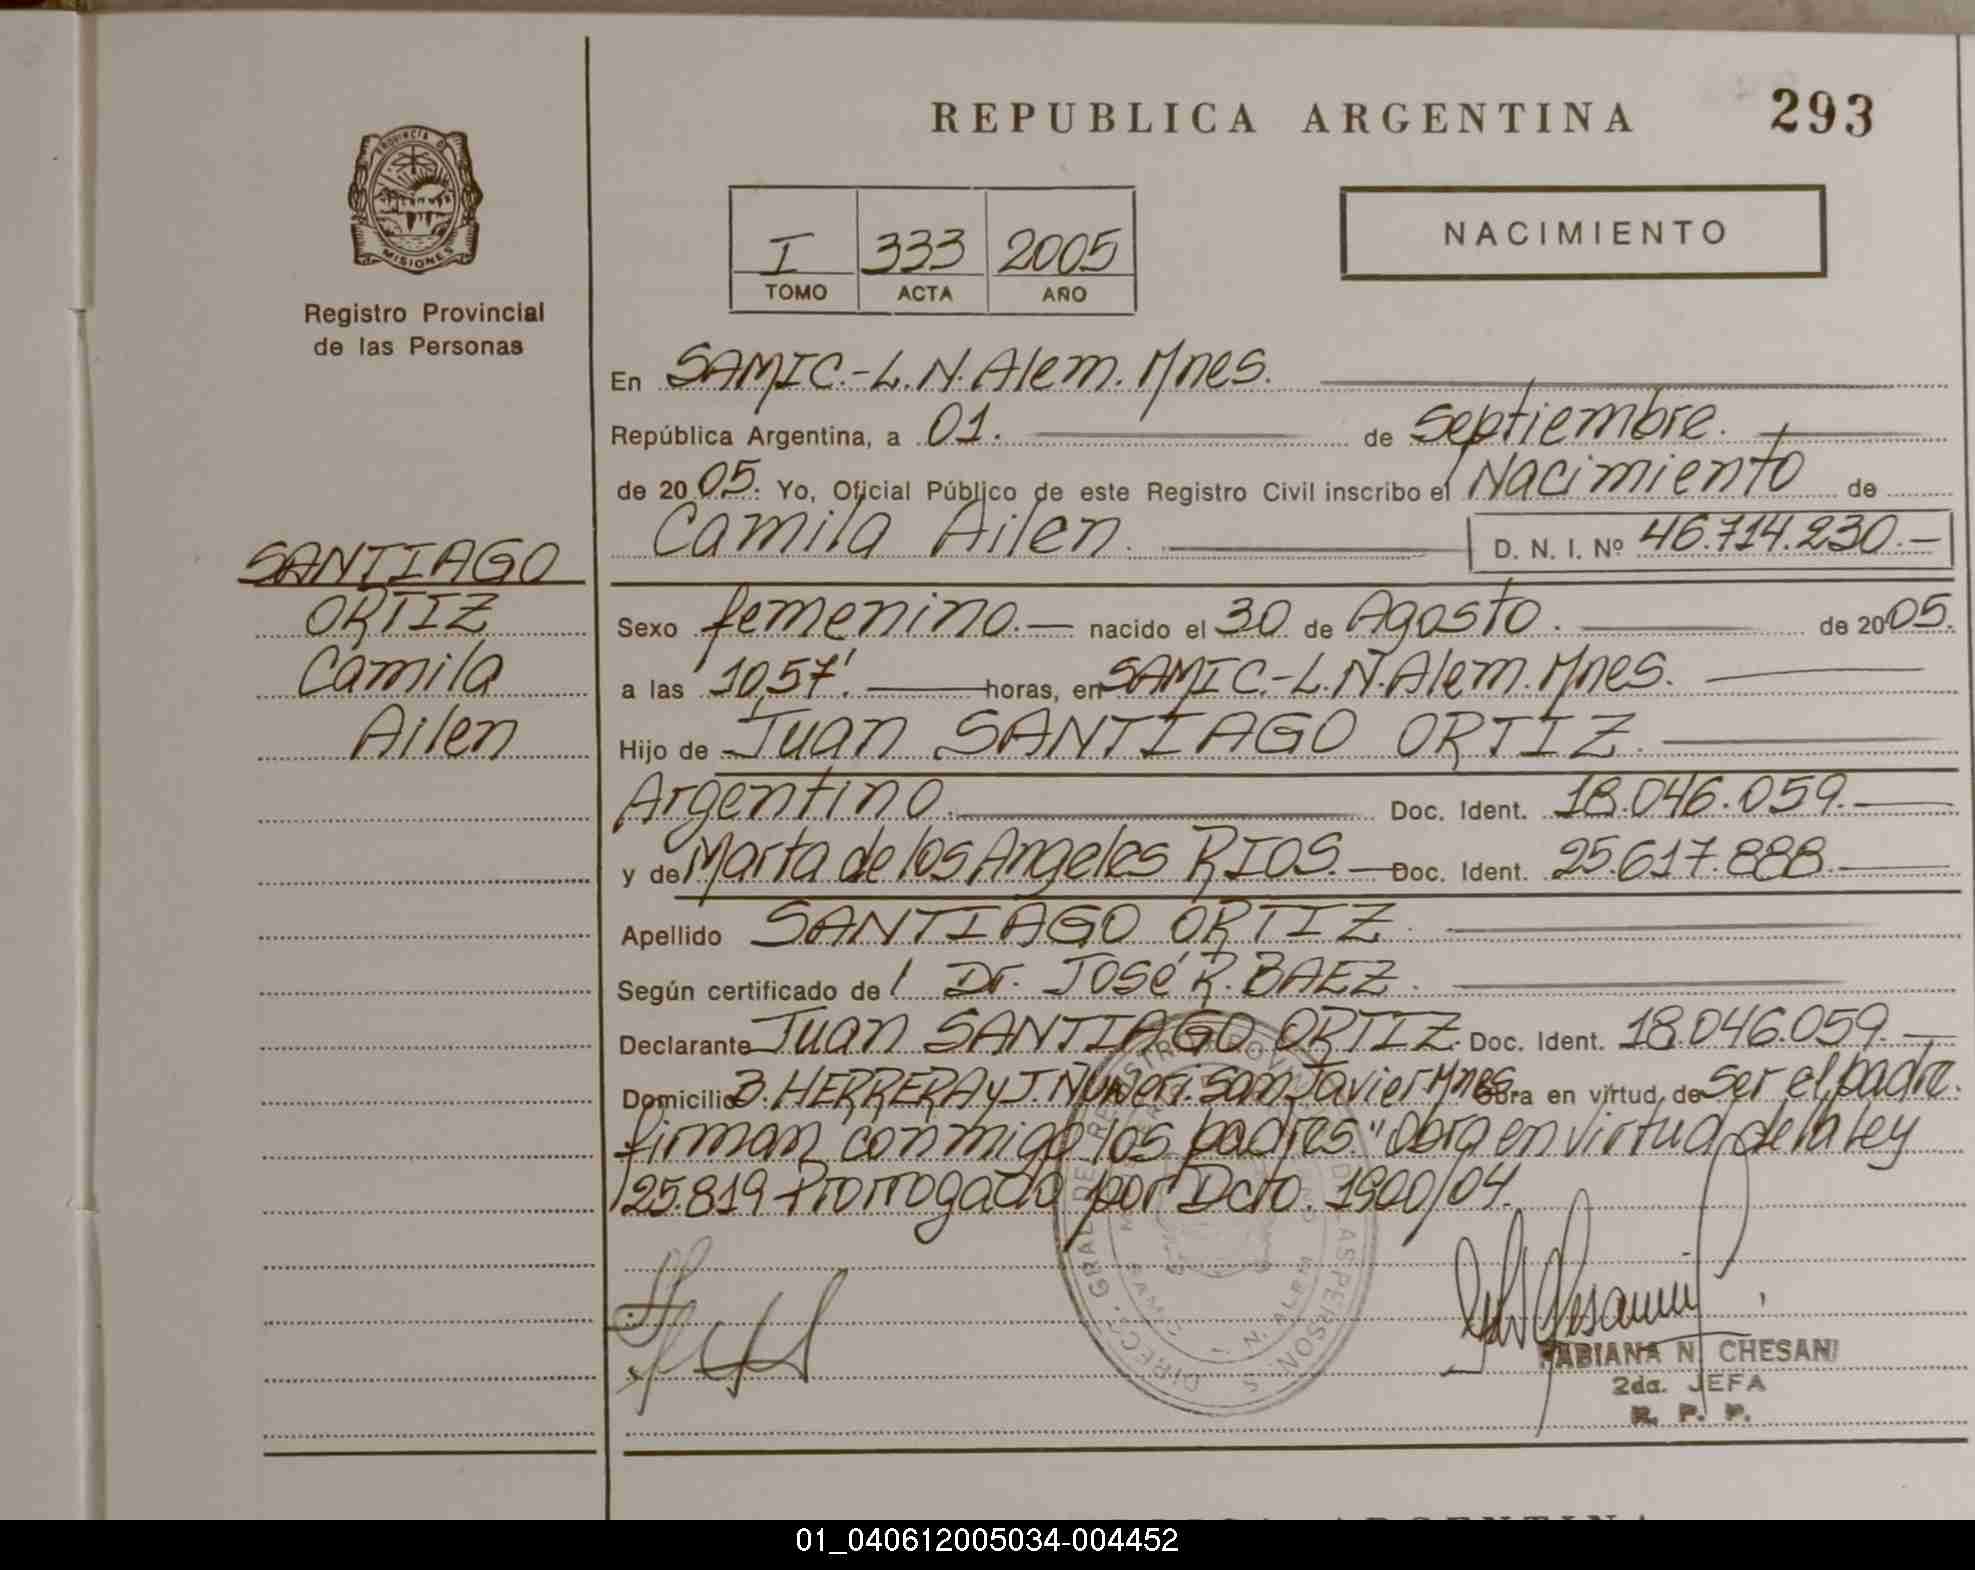 REPUBLICA ARGENTINA 293
PROVINCIA D
MISIONES
Registro Provincial
de las Personas
I 333 2005
TOMO ACTA AÑO
NACIMIENTO
En SAMIC.-L.N.Alem.Mnes.
República Argentina, a 01. de Septiembre.
de 2005. Yo, Oficial Público de este Registro Civil inscribo el Nacimiento de
Camila Ailen. D. N. I. Nº 46.714.230.-
SANTIAGO
ORTIZ
Camila
Ailen
Sexo femenino.- nacido el 30 de Agosto. de 2005.
a las 10,57'. horas, en SAMIC.-L.N.Alem.Mnes.
Hijo de Juan SANTIAGO ORTIZ.
Argentino. Doc. Ident. 18.046.059.-
y de Marta de los Angeles RIOS.- Doc. Ident. 25.617.888.-
Apellido SANTIAGO ORTIZ.
Según certificado de Dr. José R. BAEZ.
Declarante Juan SANTIAGO ORTIZ. Doc. Ident. 18.046.059.-
Domicilio B. HERRERA y J. San Javier Mnes Obra en virtud de ser el padre.
firman conmigo los padres." Obra en virtud de la Ley
25.819 Prorrogado por Dcto. 1900/04.
FABIANA N. CHESANI
2da. JEFA
R. P. P.
01_040612005034-004452